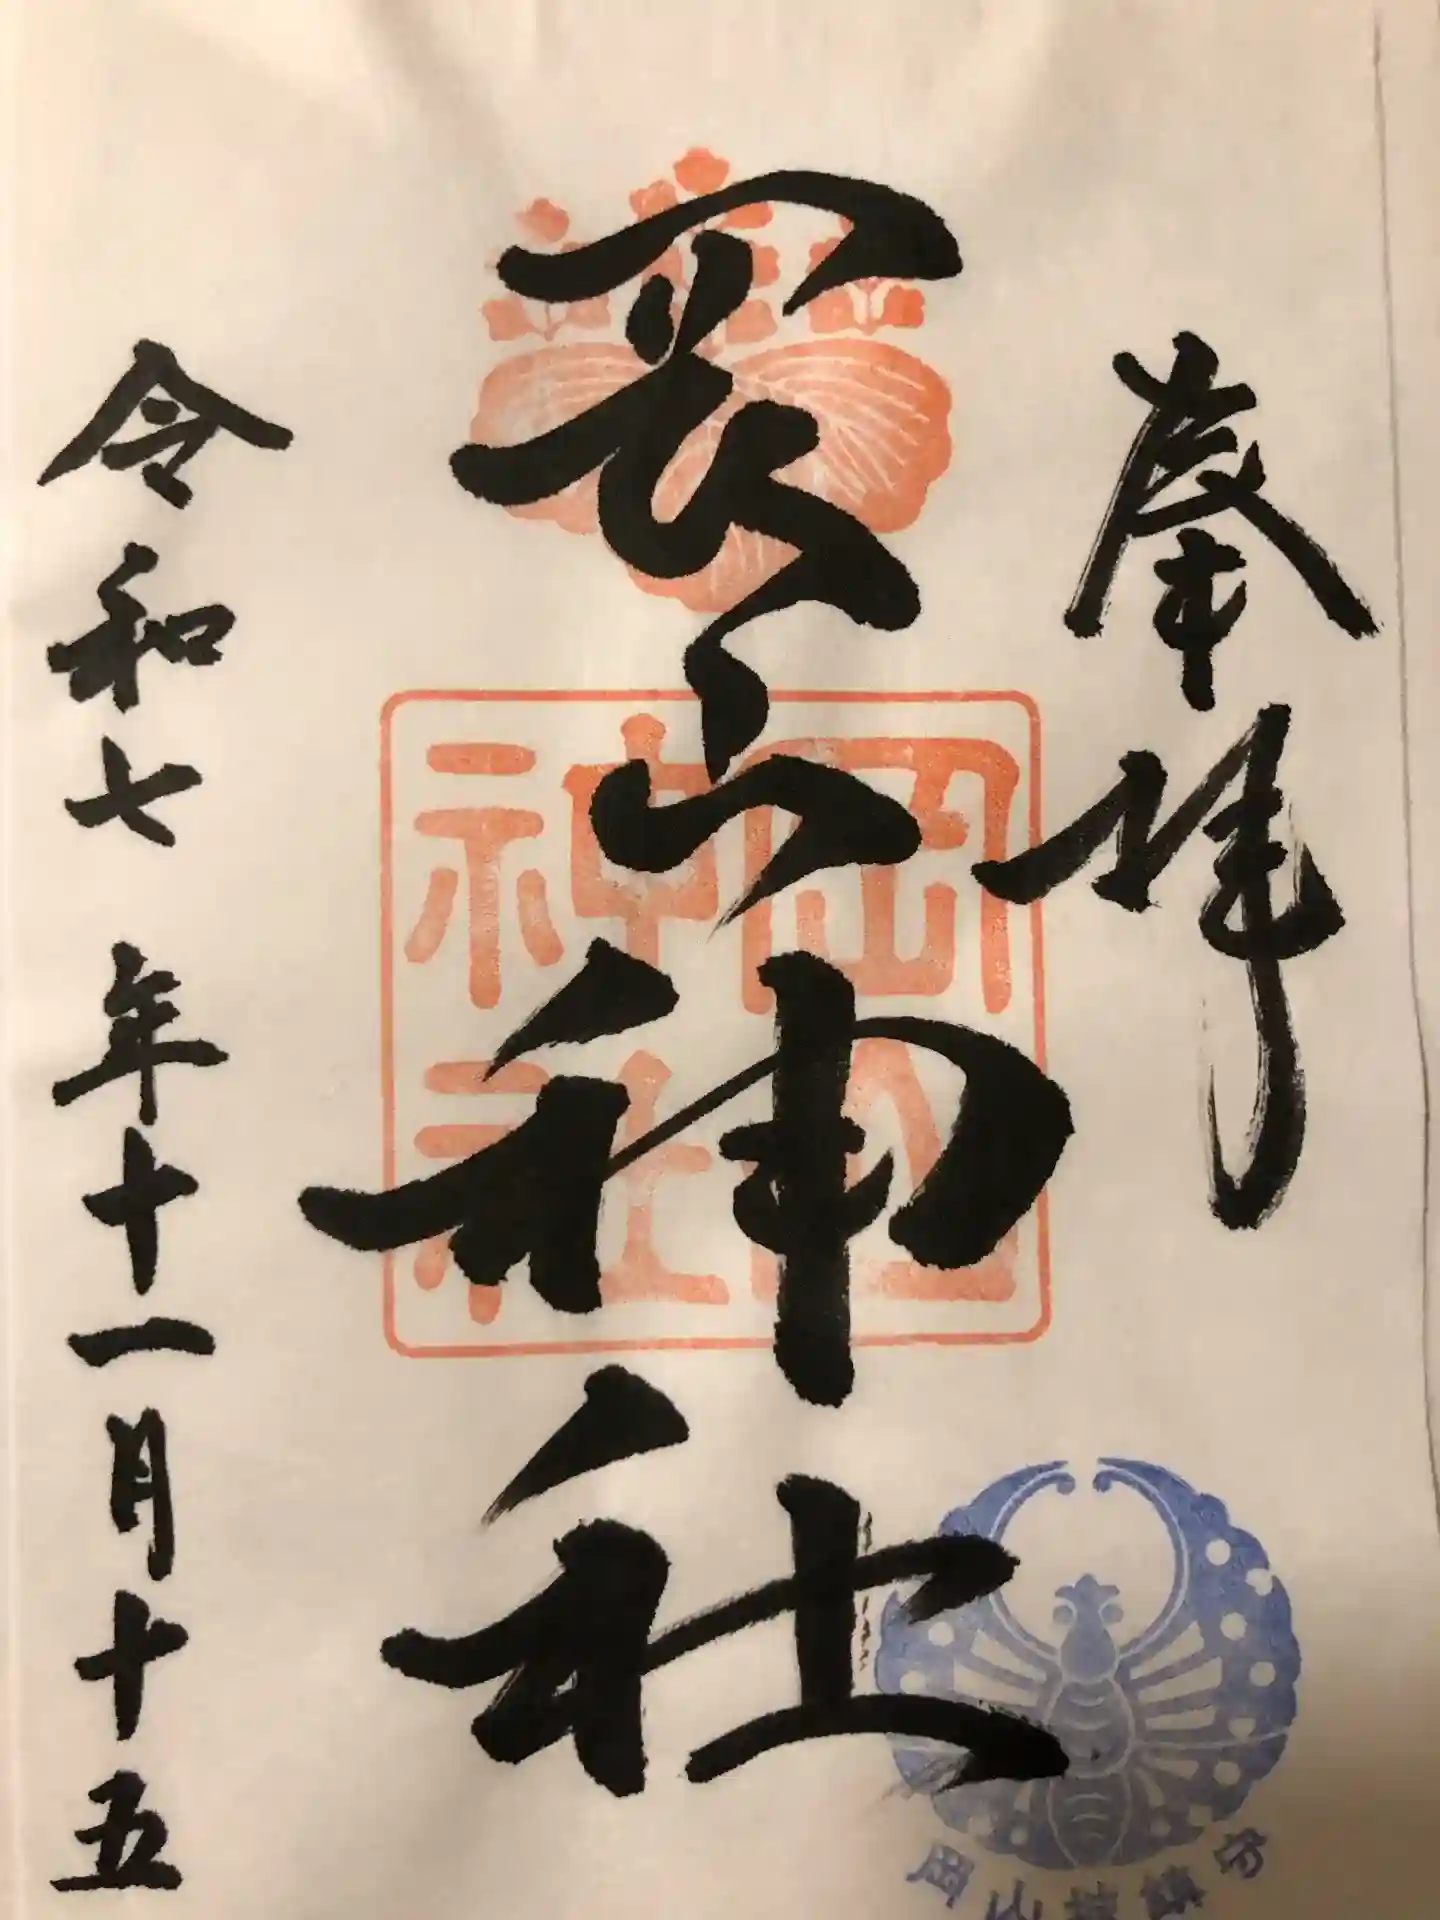 奉拝
岡山神社
岡山
神社
令和七年十一月十五
岡山城鎮守